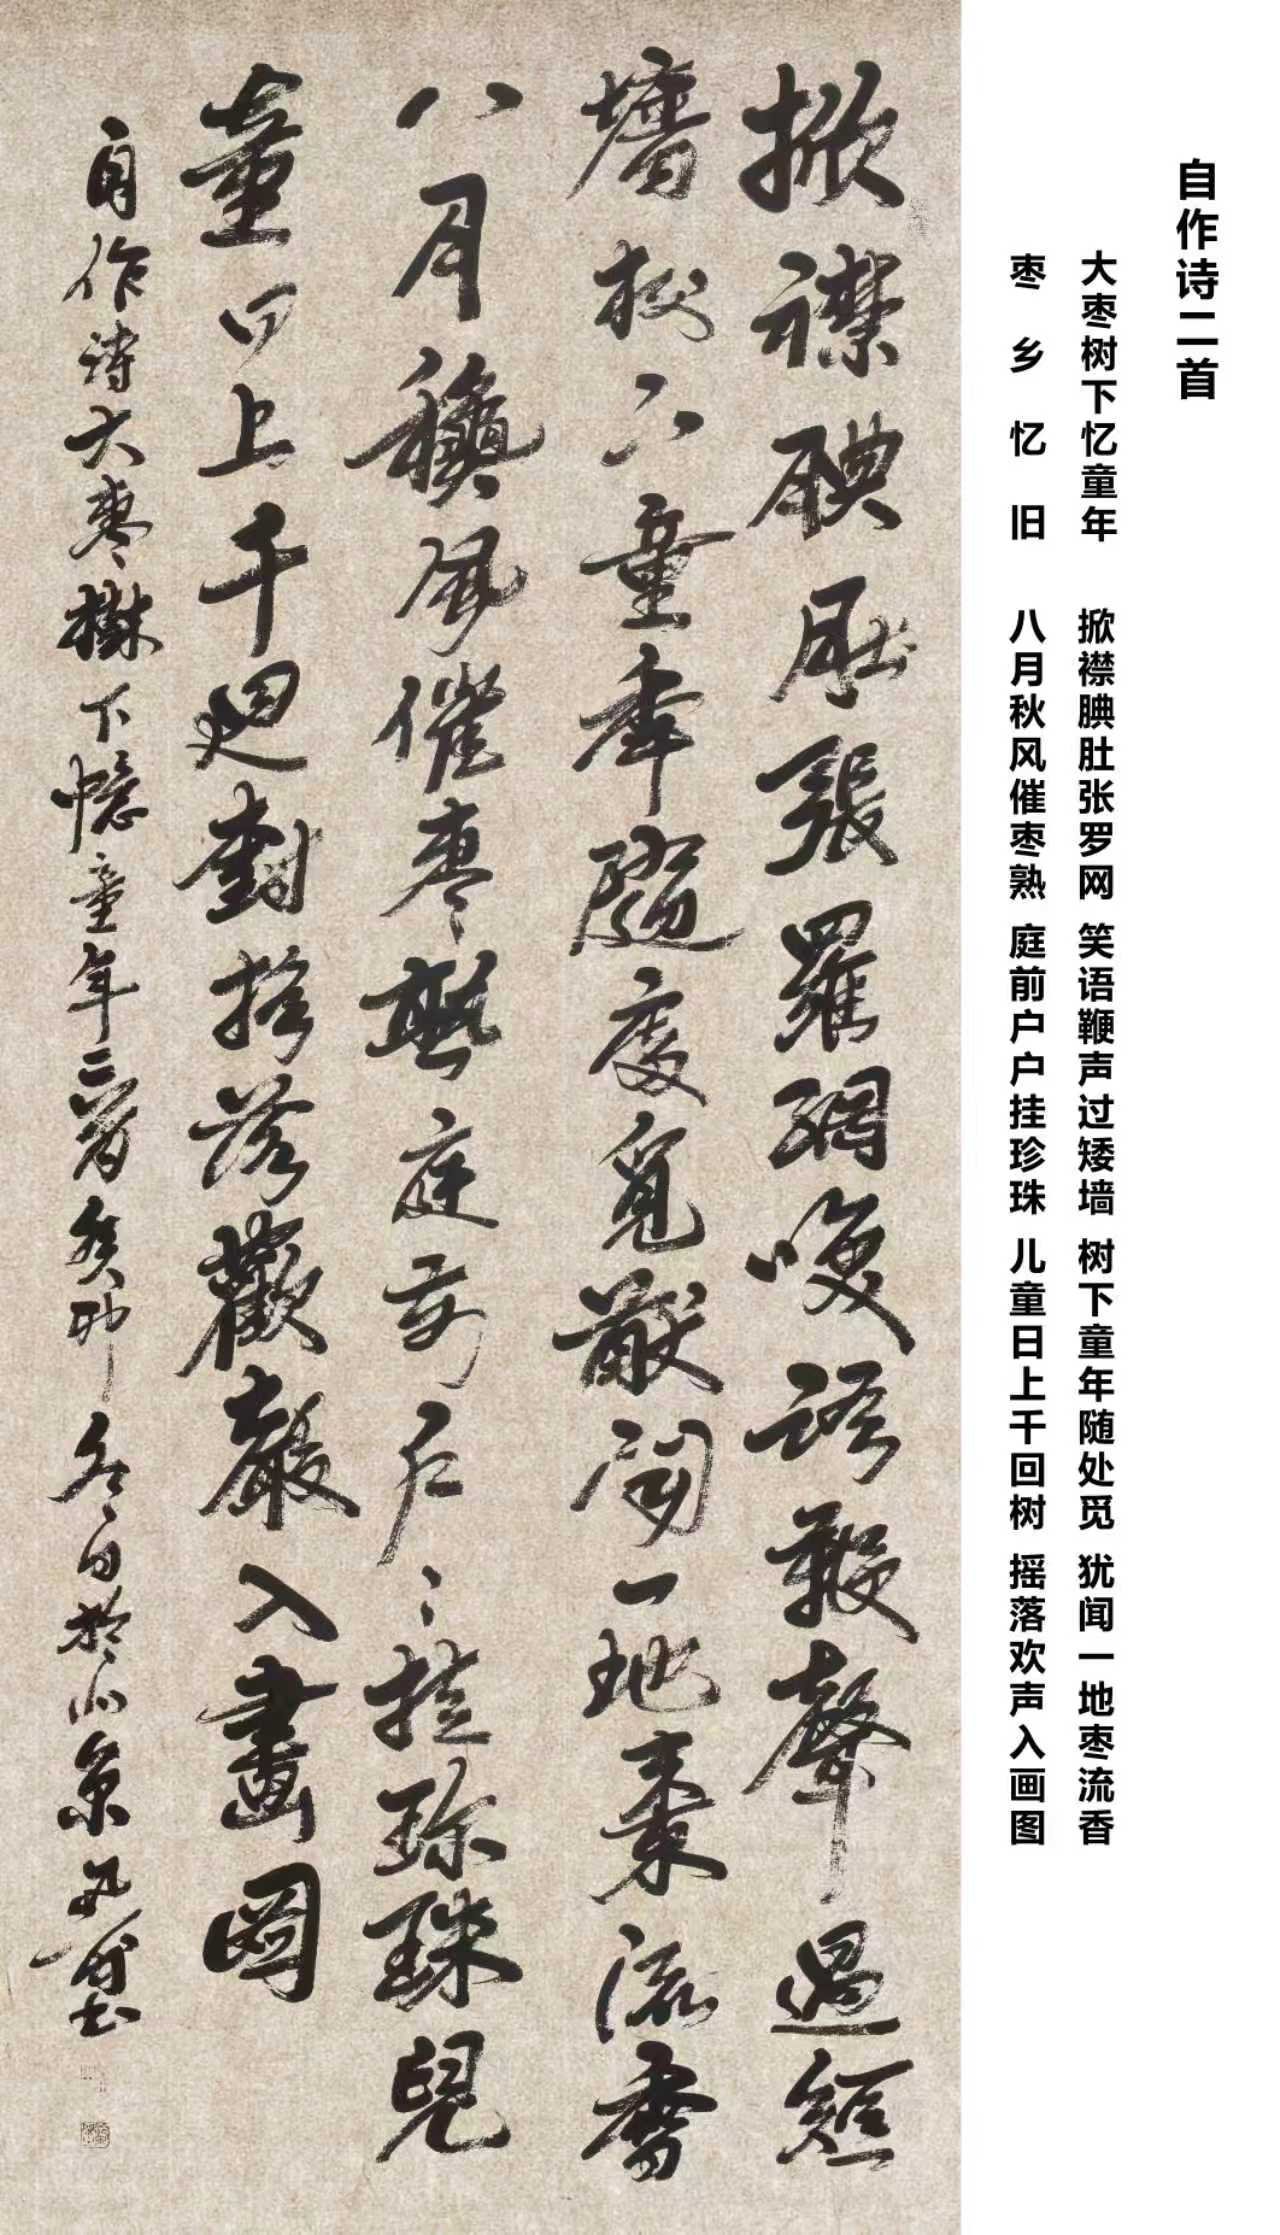 自作诗二首
大枣树下忆童年 掀襟腆肚张罗网 笑语鞭声过矮墙 树下童年随处觅 犹闻一地枣流香
枣乡忆旧 八月秋风催枣熟 庭前户户挂珍珠 儿童日上千回树 摇落欢声入画图
掀襟腆肚張羅網咲語鞭聲過短
墻樹下童年隨處覓猷聞一地棗流香
八月穐風催棗熟庭前戶〻挂珍珠兒
童日上千迴樹搖落歡聲入畫圖
自作詩大棗樹下憶童年二首癸卯冬日於北京